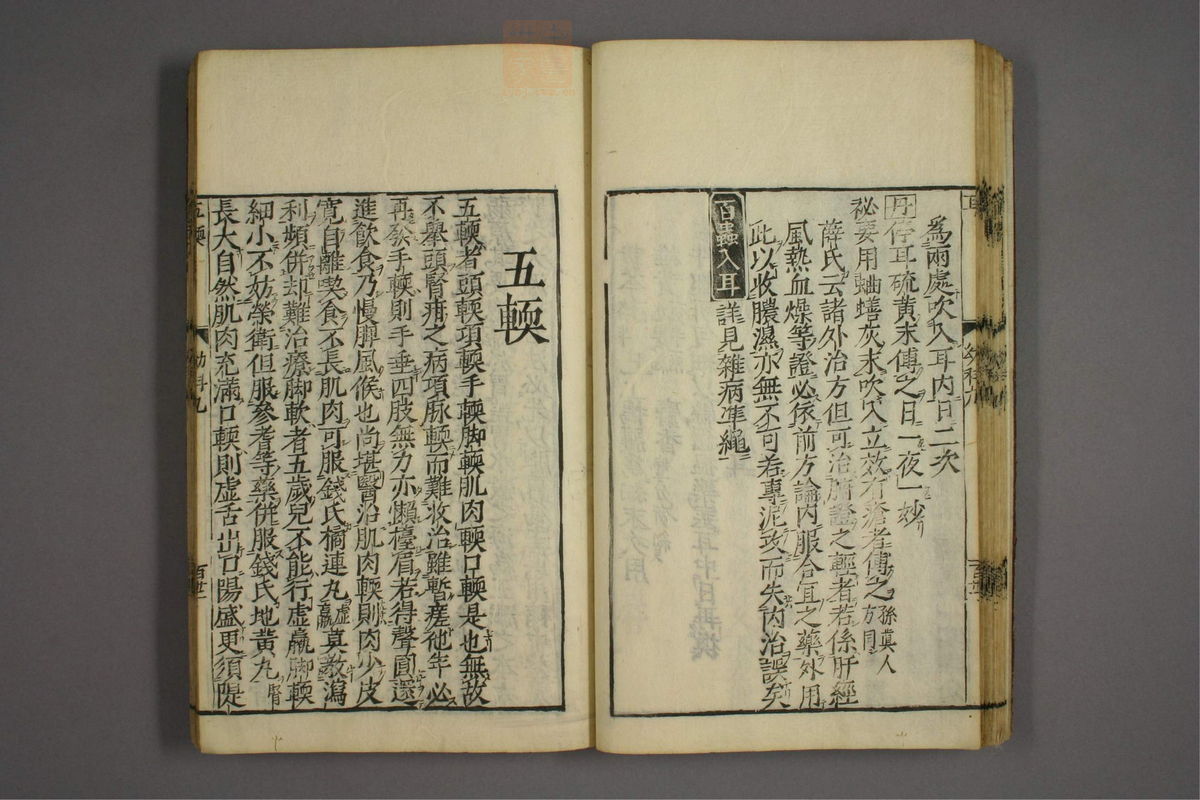 為兩處吹入耳內日二次
丹停耳硫黃末傅之日一夜一妙
秘要用蚰蟮灰末吹入立效有瘡者傅之孫真人方同
薛氏云諸外治方但可治腑證之輕者若係肝經
風熱血燥等證必依前方論內服合宜之藥外用
此以收膿濕亦無不可若專泥攻而失內治誤矣
百蟲入耳 詳見雜病準繩
五輭
五輭者頭輭項輭手輭脚輭肌肉輭口輭是也無故
不舉頭腎疳之病項脉輭而難收治雖暫瘥他年必
再發手輭則手垂四肢無力亦懶擡眉若得聲圓還
進飲食乃慢脾風候也尚堪醫治肌肉輭則肉少皮
寬自離喫食不長肌肉可服錢氏橘連丸虛羸莫教瀉
利頻併却難治療脚軟者五歲兒不能行虛羸脚輭
細小不妨榮衛但服參耆等藥併服錢氏地黃丸腎
長大自然肌肉充滿口輭則虛舌出口陽盛更須隄
五輭
幼科九